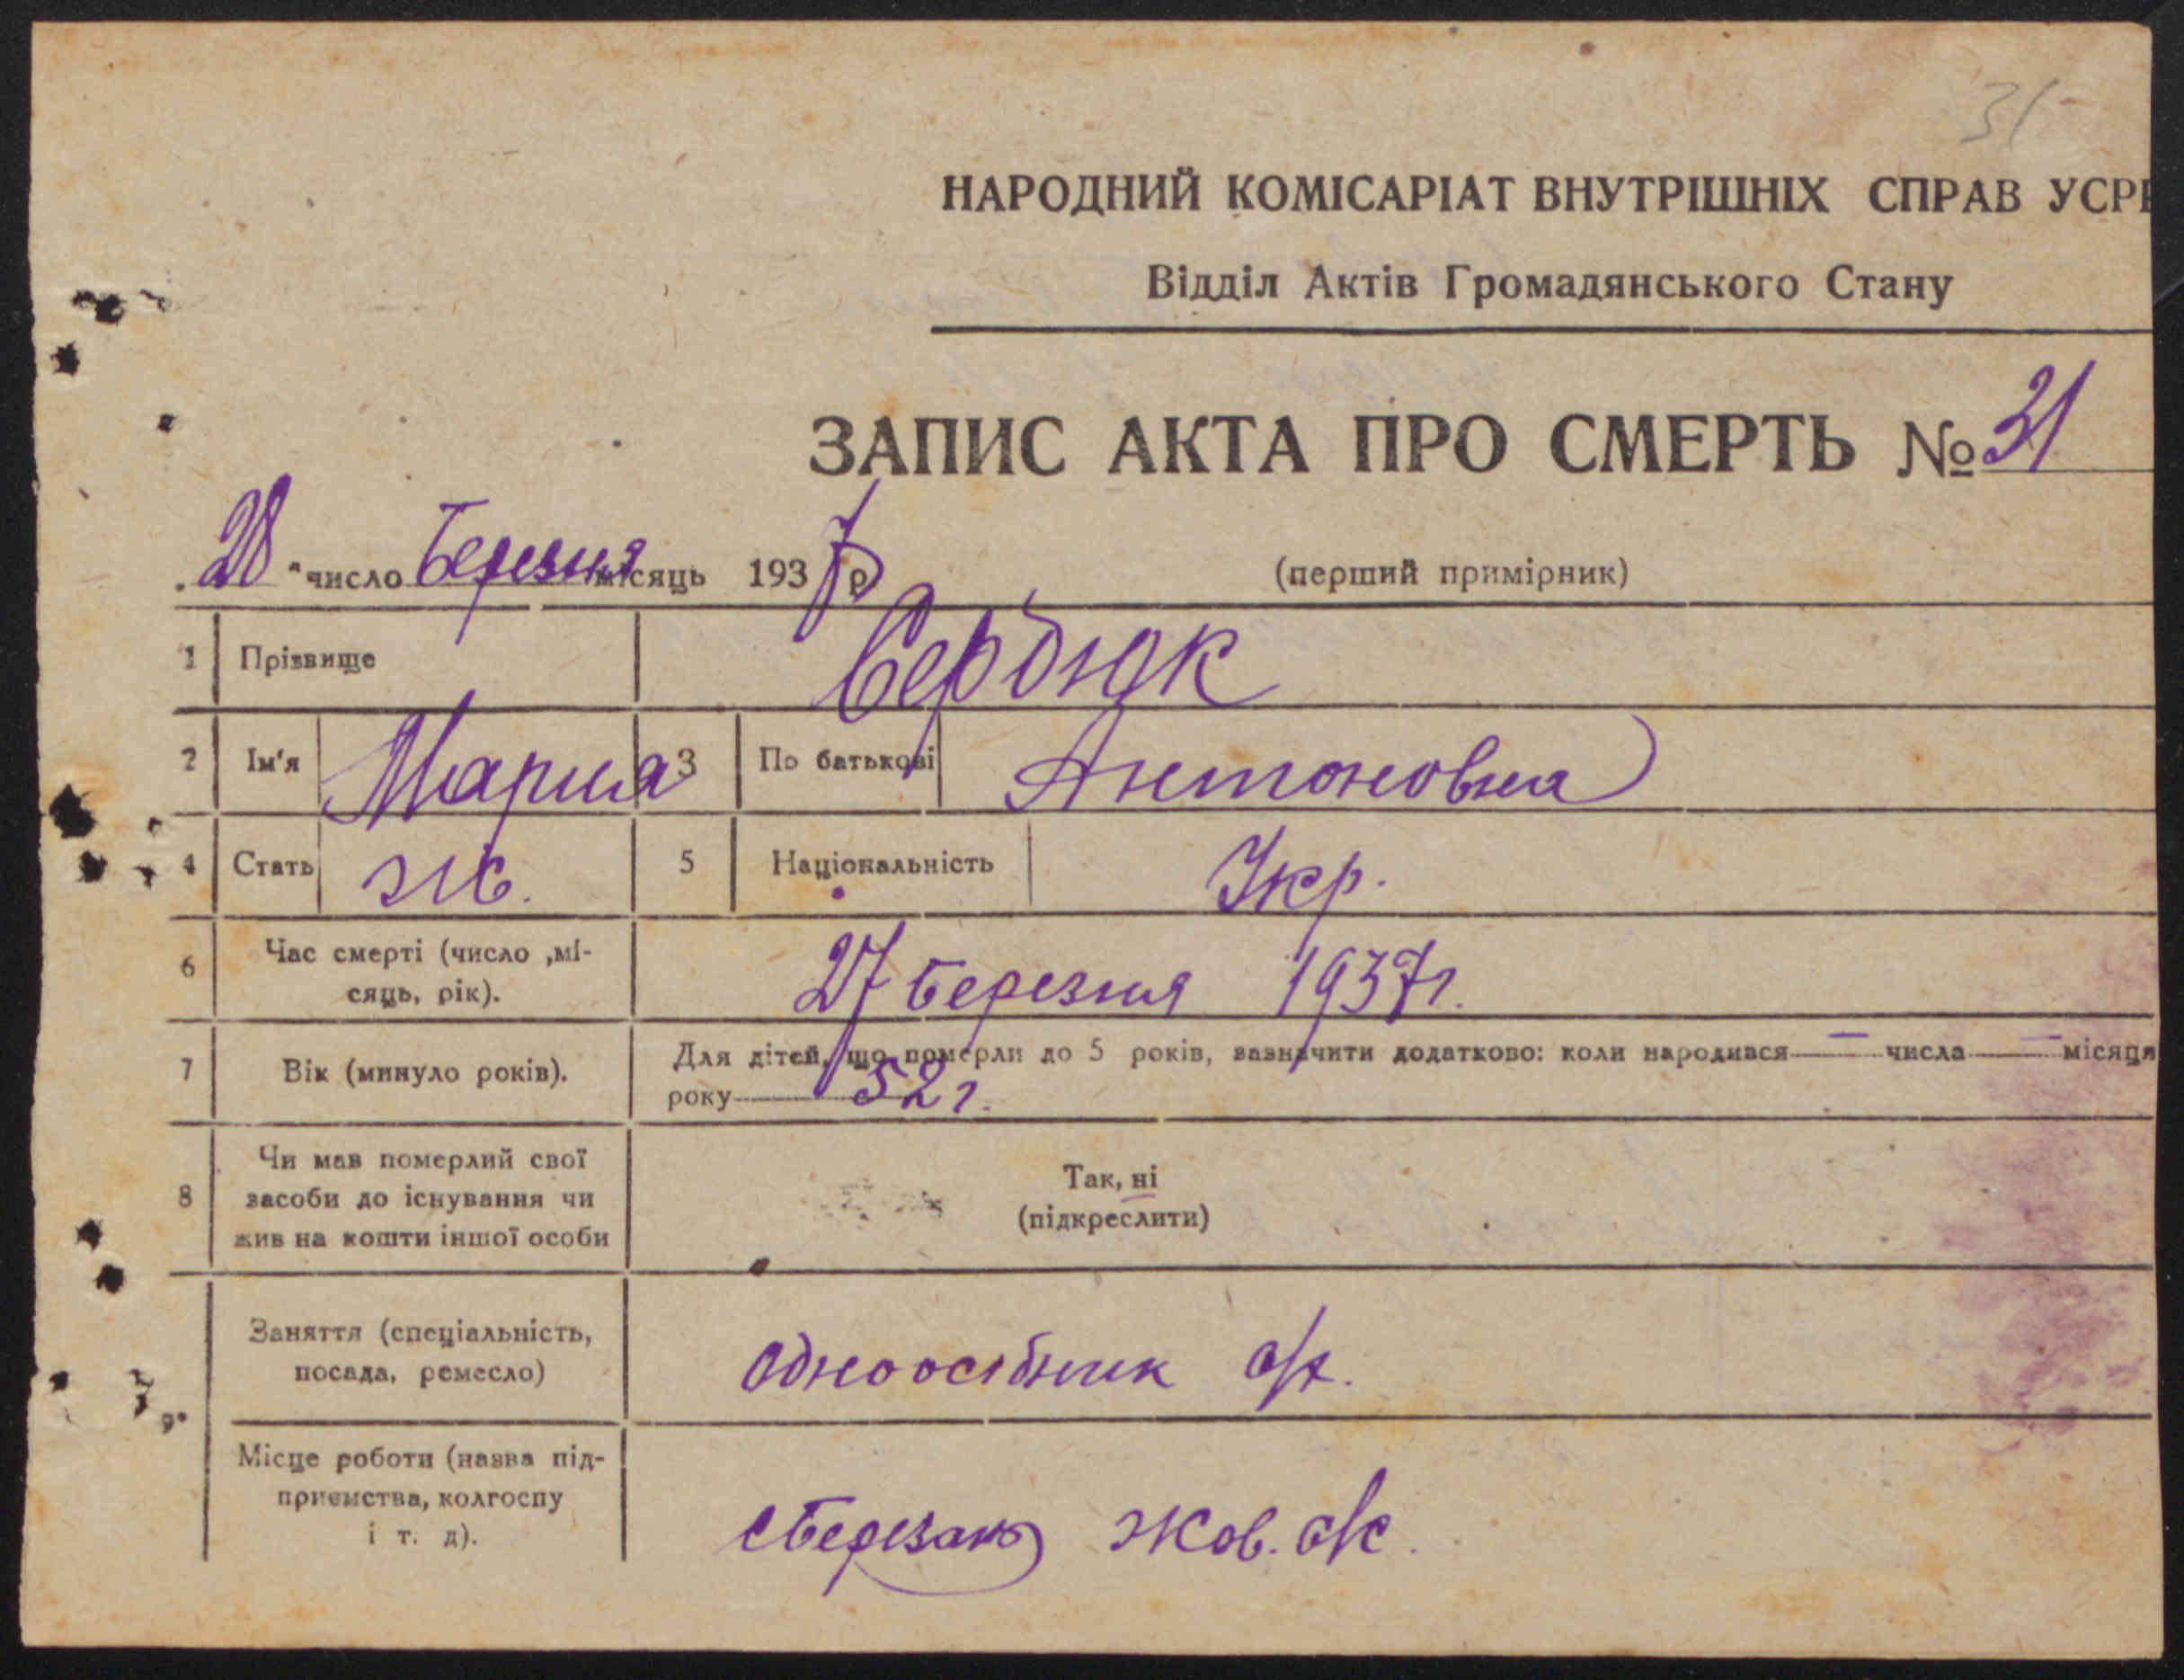 31
НАРОДНИЙ КОМІСАРІАТ ВНУТРІШНІХ СПРАВ УСРР
Відділ Актів Громадянського Стану
ЗАПИС АКТА ПРО СМЕРТЬ № 31
„28" число Березня місяць 1937 р
(перший примірник)
1 Прізвище Сердюк
2 Ім'я Мария 3 По батькові Антоновна
4 Стать ж. 5 Національність Укр.
6 Час смерті (число ,мі-
сяць, рік). 27 березня 1937 г.
7 Вік (минуло років). Для дітей, що померли до 5 років, зазначити додатково: коли народився — числа — місяця
року 52 г.
8 Чи мав померлий свої
засоби до існування чи
жив на кошти іншої особи
Так, ні
(підкреслити)
9. Заняття (спеціальність,
посада, ремесло) одноосібник с/х.
Місце роботи (назва під-
приємства, колгоспу
і т. д). с Березань Жов. с/с.